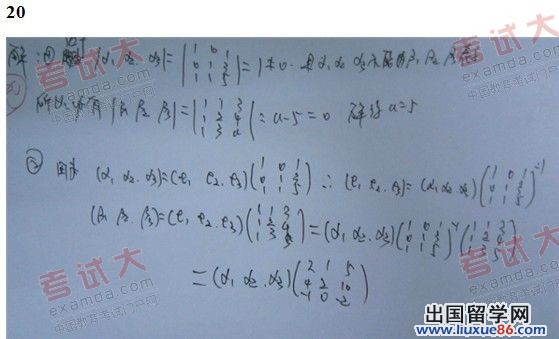 20
解：① 因为 |α₁ α₂ α₃| = |1 0 1; 0 1 3; 1 1 5| = 1 ≠ 0 且 α₁ α₂ α₃ 不能由 β₁ β₂ β₃
所以 |β₁ β₂ β₃| = |1 1 3; 1 2 4; 1 3 a| = a-5 = 0 解得 a=5
② 因为 (α₁ α₂ α₃)=(e₁ e₂ e₃)(1 0 1; 0 1 3; 1 1 5) ∴ (e₁ e₂ e₃) = (α₁ α₂ α₃)(1 0 1; 0 1 3; 1 1 5)⁻¹
(β₁ β₂ β₃)=(e₁ e₂ e₃)(1 1 3; 1 2 4; 1 3 5) = (α₁ α₂ α₃)(1 0 1; 0 1 3; 1 1 5)⁻¹(1 1 3; 1 2 4; 1 3 5)
= (α₁ α₂ α₃)(2 1 5; 4 2 10; -1 0 -2)
考试大
examda.com
中国教育考试门户网
考试大
examda.com
中国教育考试门户网
考试大
examda.com
中国教育考试门户网
出国留学网
www.liuxue86.com